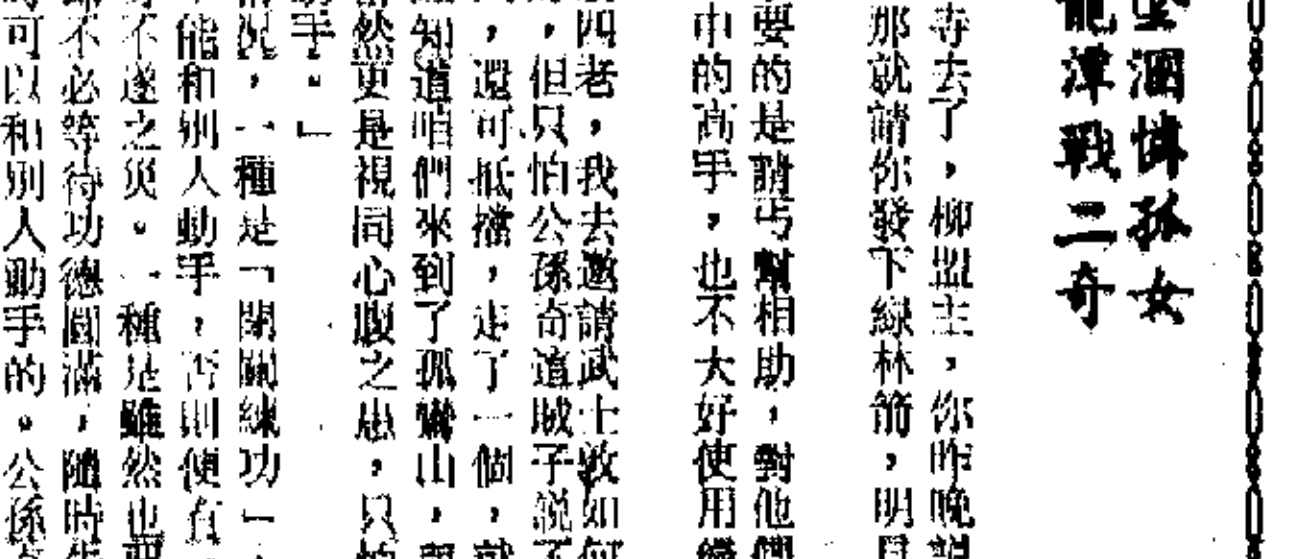 墮溷憐孤女
龍潭戰二奇
寺去了，柳盟主，你昨晚説
那就請你發下綠林箭，明
要的是請丐幫相助，對他們
中的高手，也不大好使用綠
四老，我去邀請武士敦如何
，但只怕公孫奇這賊子説不
，還可抵擋，走了一個，就
知道咱們來到了孤鸞山，
然更是視同心腹之患，只怕
手。」
情況，一種是「閉關練功」，
能和別人動手，否則便有
不遂之災。一種是雖然也要
不必等待功德圓滿，隨時
可以和別人動手的。公孫奇